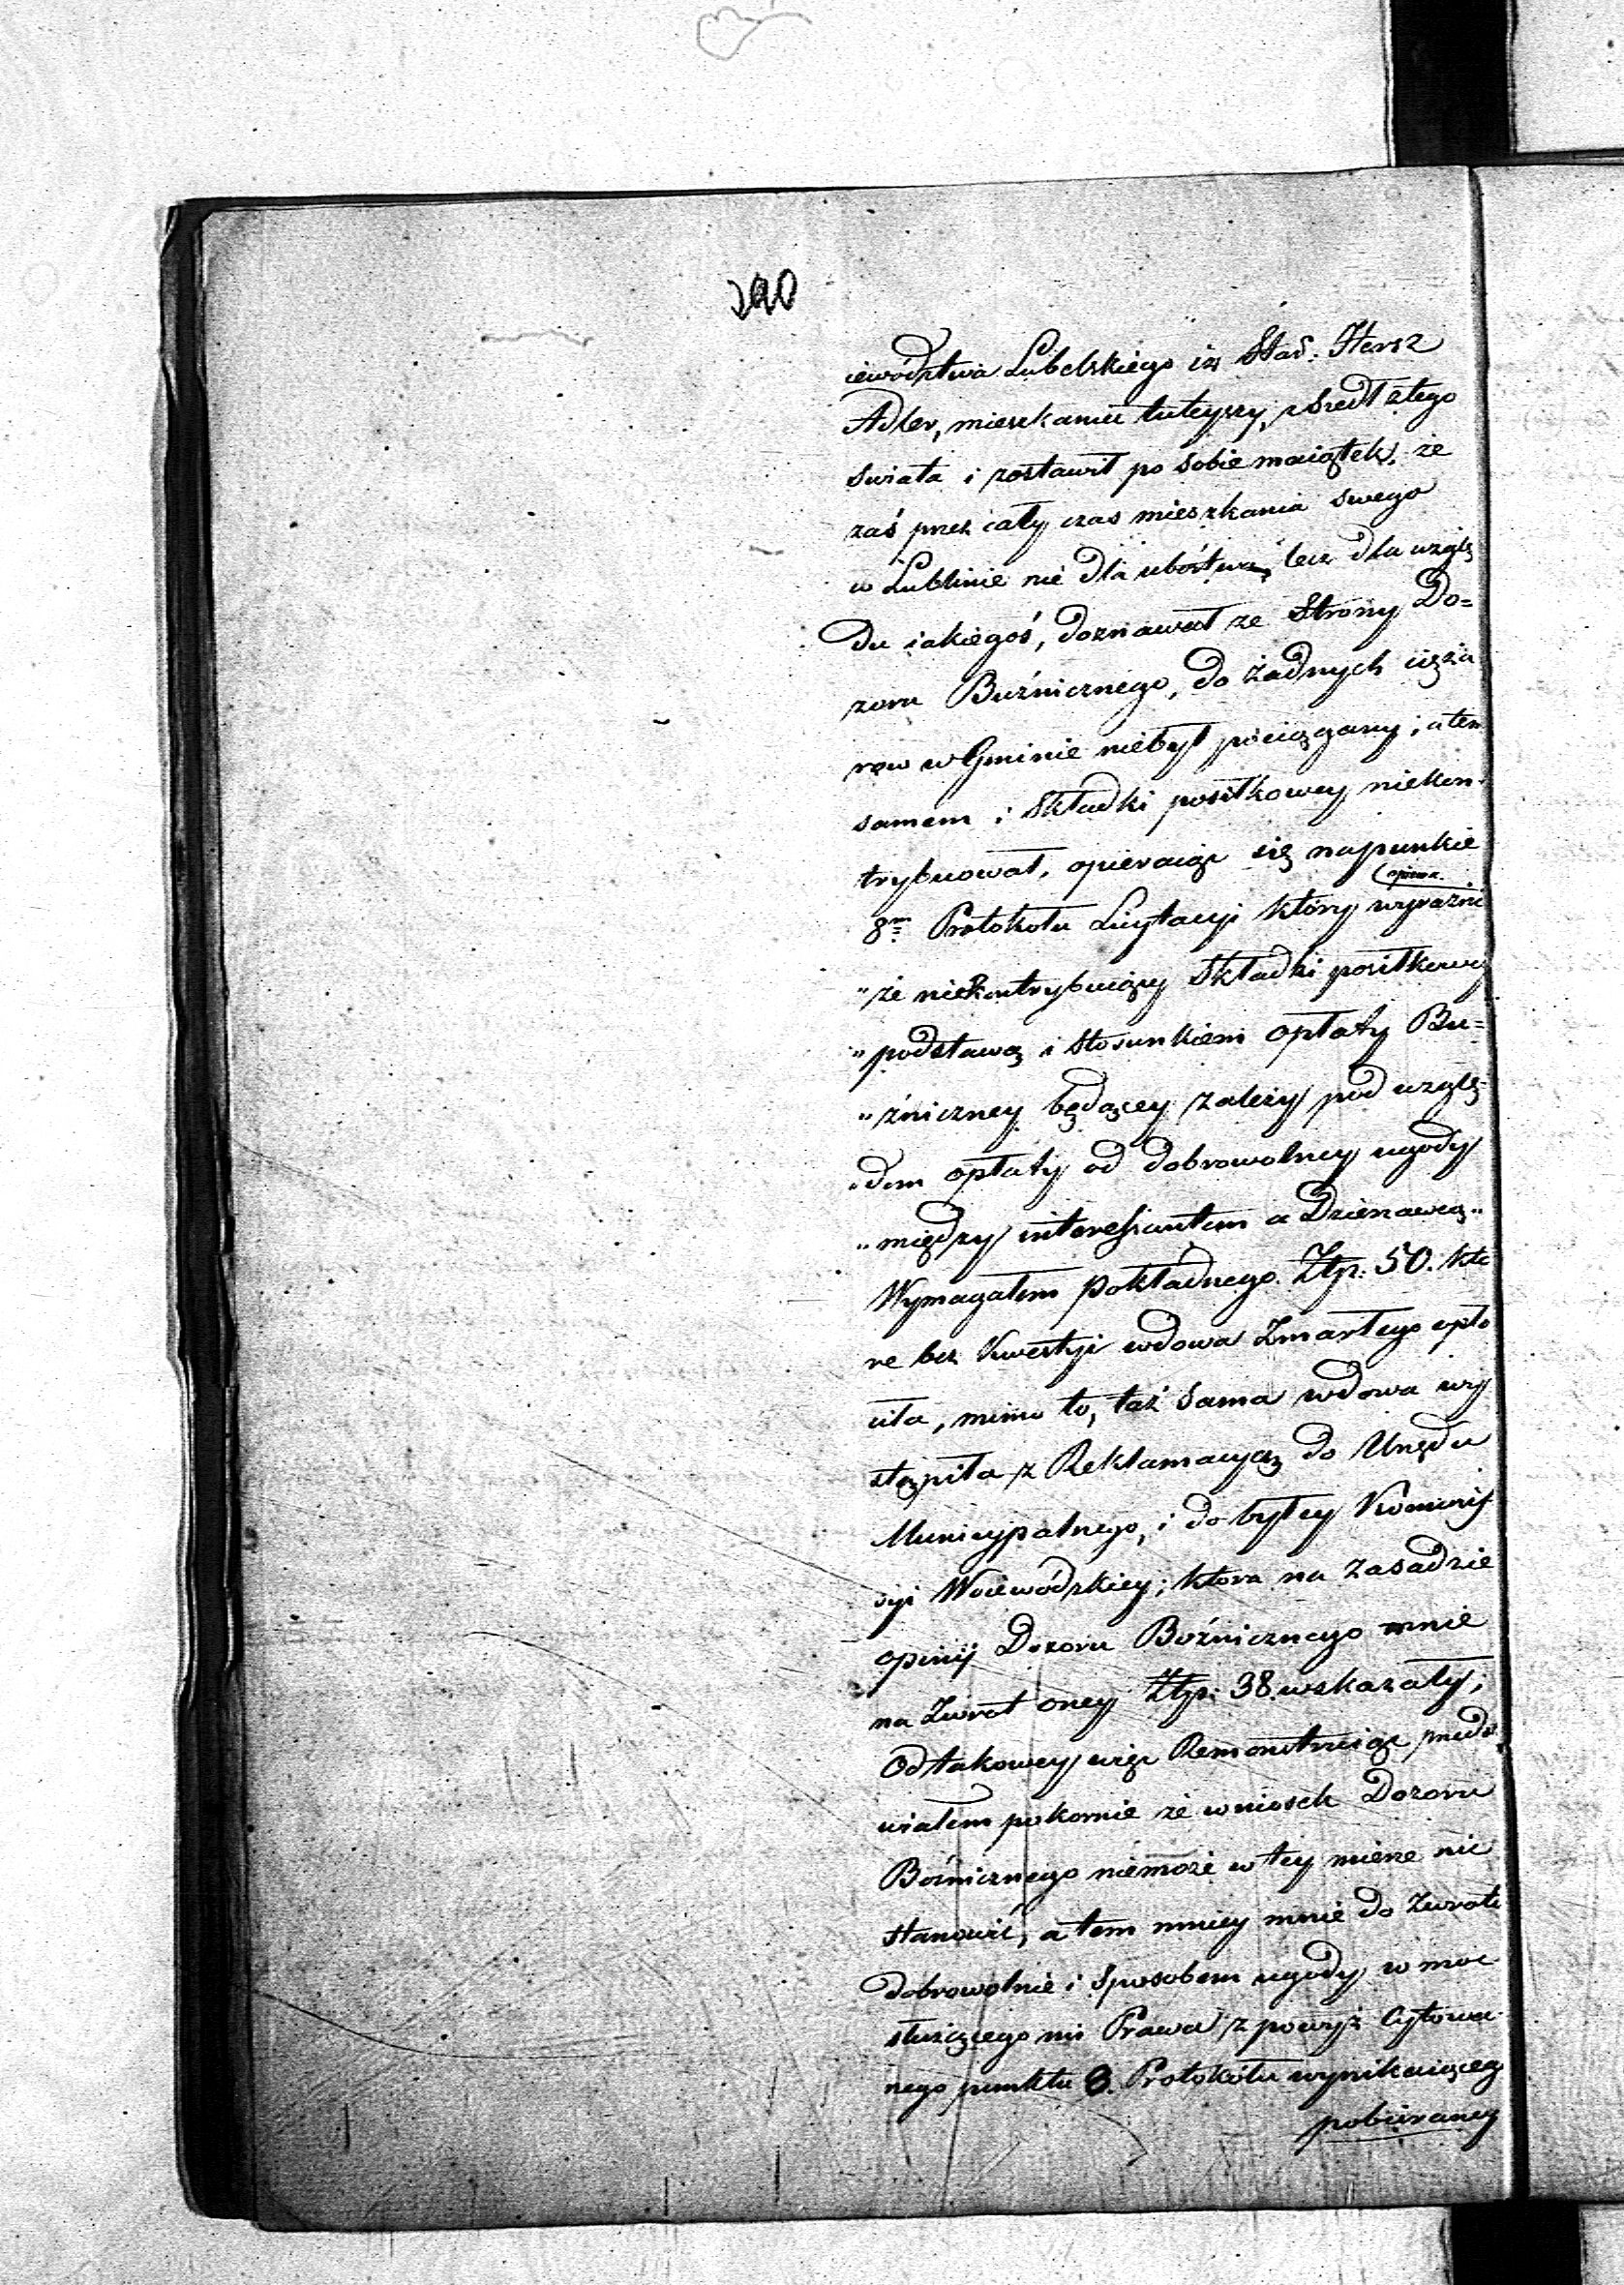 290
iewództwa Lubelskiego iż Star. Hersz
Adler, mieszkaniec tuteyszy, zszedł z tego
świata i zostawił po sobie maiątek, że
zaś przez cały czas mieszkania swego
w Lublinie nie dla ubóstwa, lecz dla wzglę
du iakiegoś, doznawał ze Strony Do=
zoru Buźnicznego, do żadnych cięża
rów w Gminie niebył pociągany; a tem
samem i Składki posiłkowey niekon-
trybuował, opieraiąc się na punkcie
8m Protokołu Licytacyi który wyraźnie
opiewa.
"że niekontrybuiący Składki posiłkowey
"podstawą i stosunkiem opłaty Bu=
"źniczney będącey zależy pod wzglę-
"dem opłaty od dobrowolney ugody
"między interessantem a Dzierzawcą"
Wymagałem Pokładnego Złp. 50. któ
re bez kwestyi wdowa Zmarłego opła
ciła, mimo to, taż sama wdowa wy
stąpiła z Reklamacyą do Urzędu
Municypalnego, i do byłey Kommis
syi Woiewódzkiey; która na zasadzie
opinij Dozoru Bóźnicznego mnie
na Zwrot oney Złp. 38. wskazały;
Od takowey więc Remonstruiąc przeds
wiałem pokornie że wniosek Dozoru
Bóźnicznego niemoże w tey mierze nic
stanowić, a tem mniey mnie do Zwrotu
dobrowolnie i Sposobem ugody w moc
służącego mi Prawa z powyż Cytowa-
nego punktu 8. Protokółu wynikaiącego
pobieraney